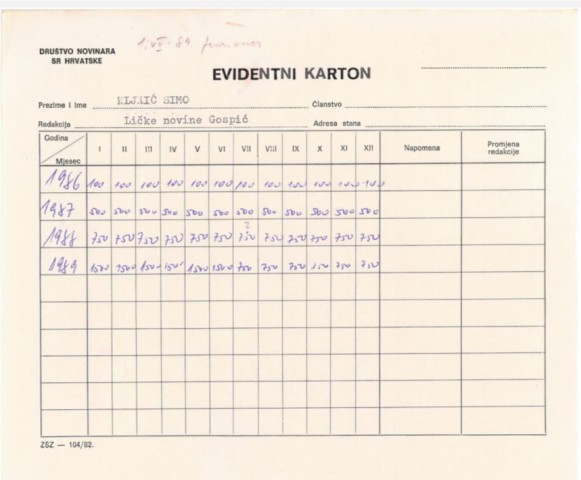 DRUŠTVO NOVINARA
SR HRVATSKE
1. VII - 89.
EVIDENTNI KARTON
Prezime i ime KLJAIĆ SIMO Članstvo
Redakcija Ličke novine Gospić Adresa stana
Godina
Mjesec I II III IV V VI VII VIII IX X XI XII Napomena Promjena redakcije
1986 100 100 100 100 100 100 100 100 100 100 100 100
1987 500 500 500 500 500 500 500 500 500 500 500 500
?
1988 750 750 750 750 750 750 750 750 750 750 750 750
1989 1500 1500 1500 1500 1500 1500 750 750 750 750 750 750
ZSZ — 104/82.